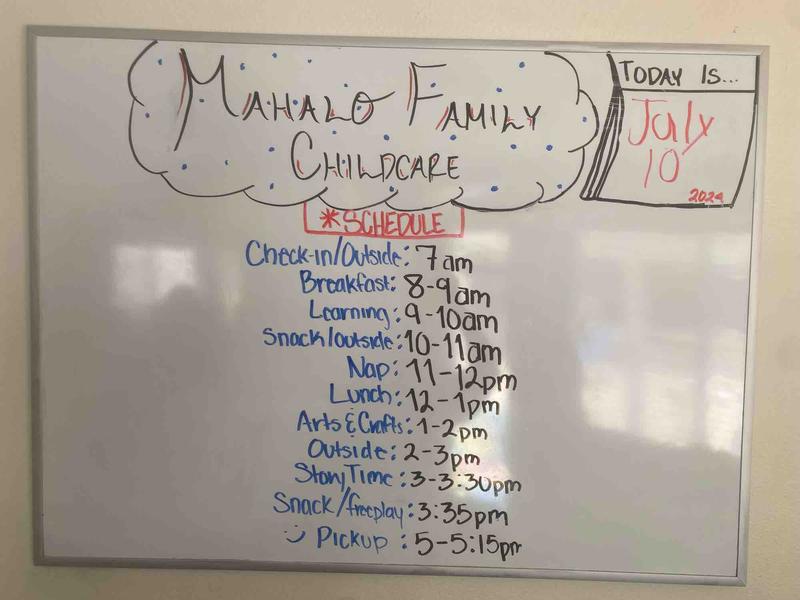 MAHALO FAMILY
CHILDCARE
TODAY IS...
July
10
2024
*SCHEDULE
Check-in/Outside: 7am
Breakfast: 8-9am
Learning: 9-10am
Snack/outside: 10-11am
Nap: 11-12pm
Lunch: 12-1pm
Arts & Crafts: 1-2pm
Outside: 2-3pm
Story Time: 3-3:30pm
Snack/freeplay: 3:35pm
Pickup: 5-5:15pm